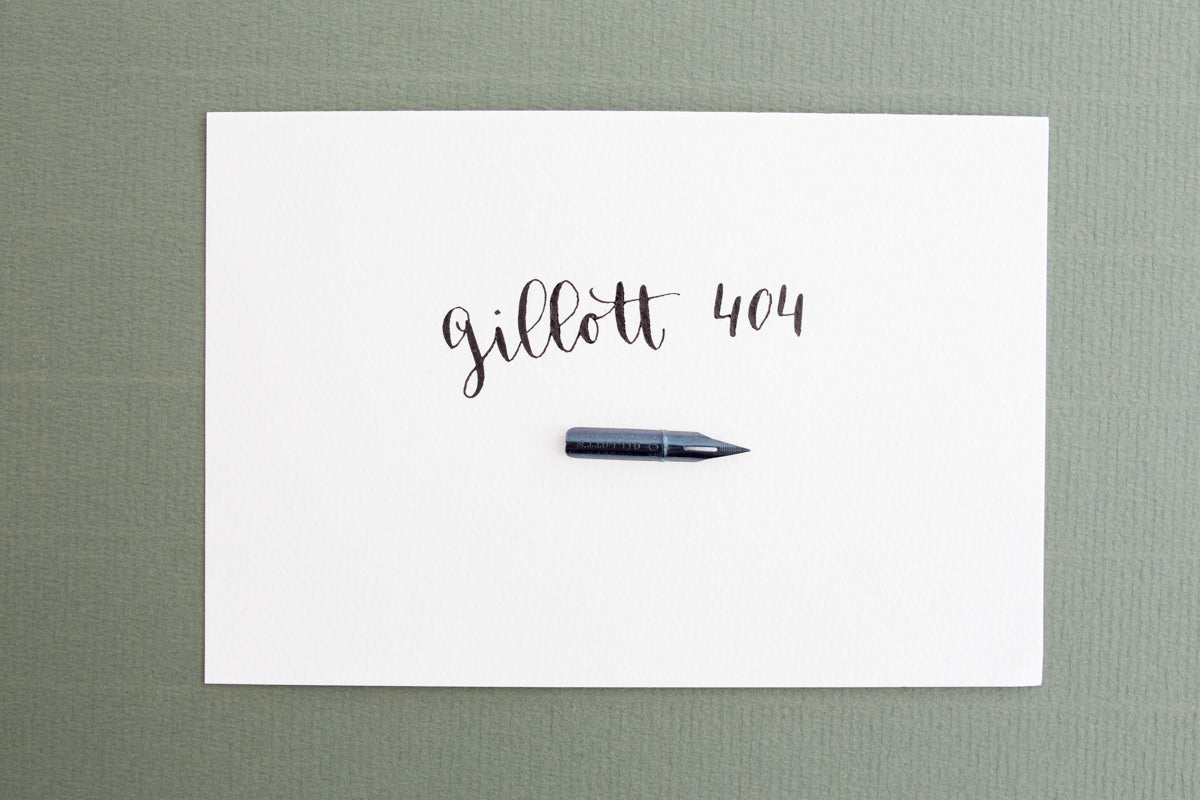 gillott 404